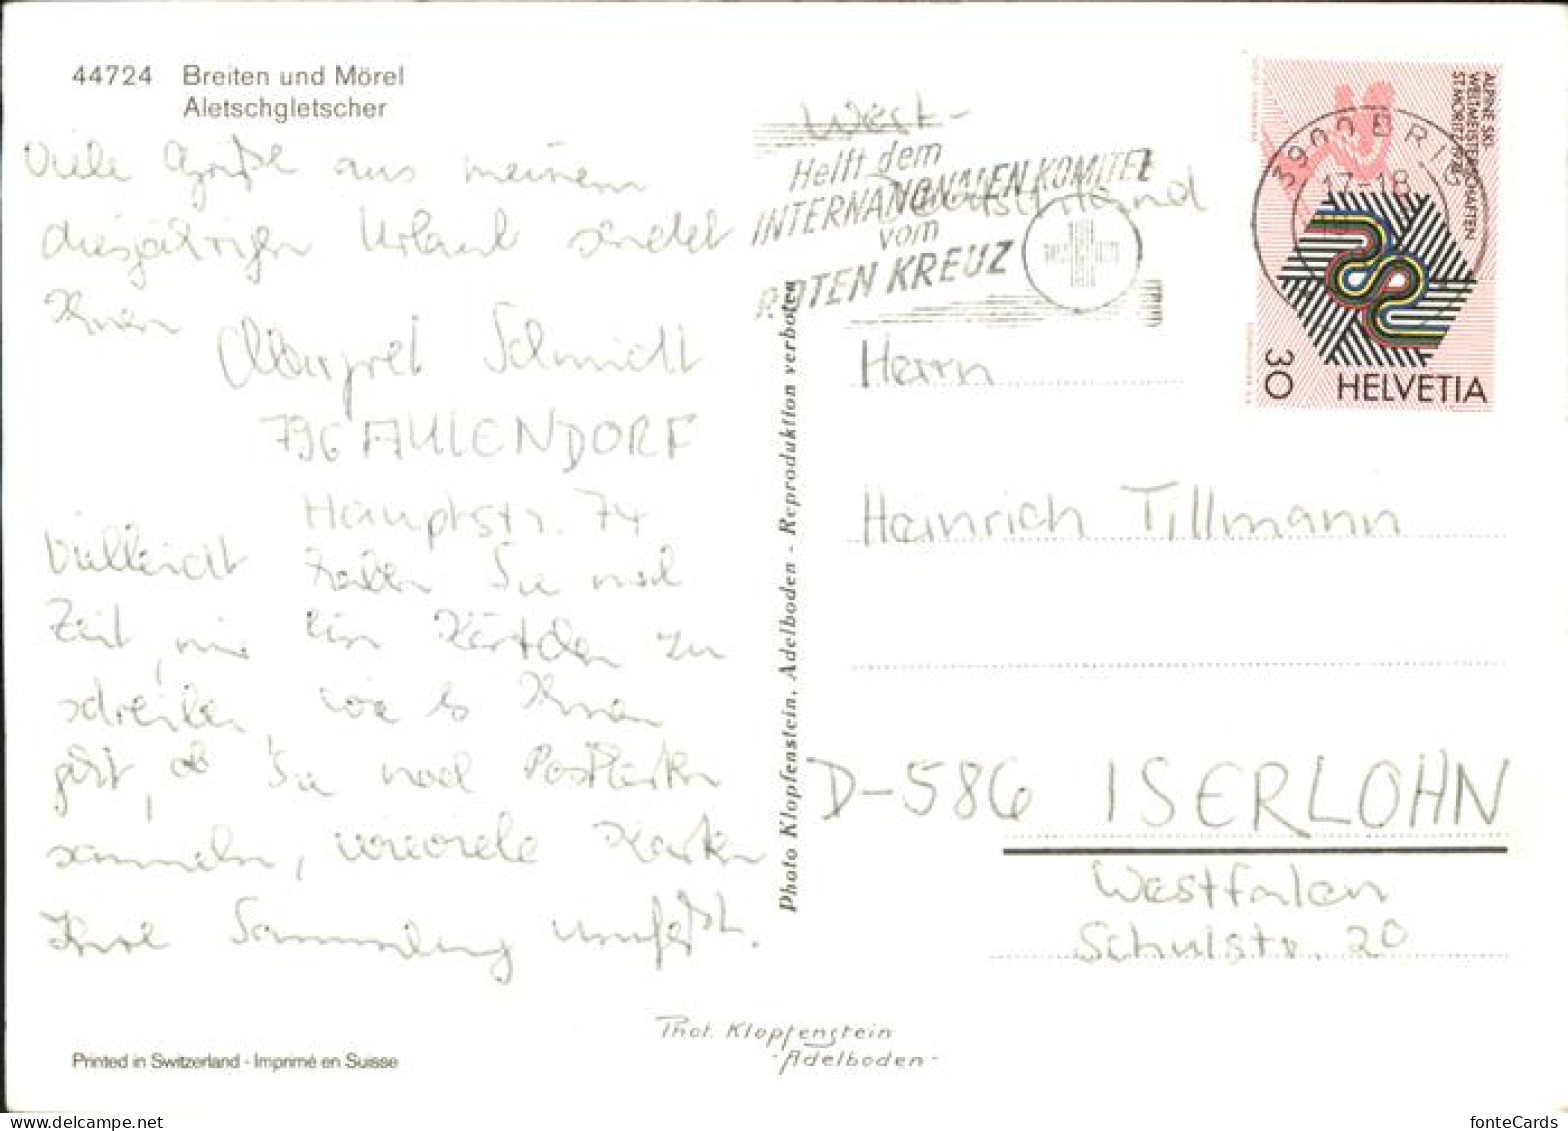 44724 Breiten und Mörel
Aletschgletscher
Viele Grüße aus meinem
diesjährigen Urlaub sendet
Ihnen
Margret Schmidt
796 AULENDORF
Hauptstr. 74
Vielleicht haben Sie mal
Zeit, mir ein Kärtchen zu
schreiben, wie es Ihnen
geht, ob Sie noch Postkarten
sammeln, wieviele Karten
Ihre Sammlung umfaßt.
Printed in Switzerland - Imprimé en Suisse
Phot. Klopfenstein
-Adelboden-
Photo Klopfenstein, Adelboden - Reproduktion verboten
West-
Deutschland
Helft dem
INTERNATIONALEN KOMITEE
vom
ROTEN KREUZ
3900 BRIG
17-18
ALPINE SKI
WELTMEISTERSCHAFTEN
ST. MORITZ 1974
30
HELVETIA
Herrn
Heinrich Tillmann
D-586 ISERLOHN
Westfalen
Schulstr. 20
fonteCards